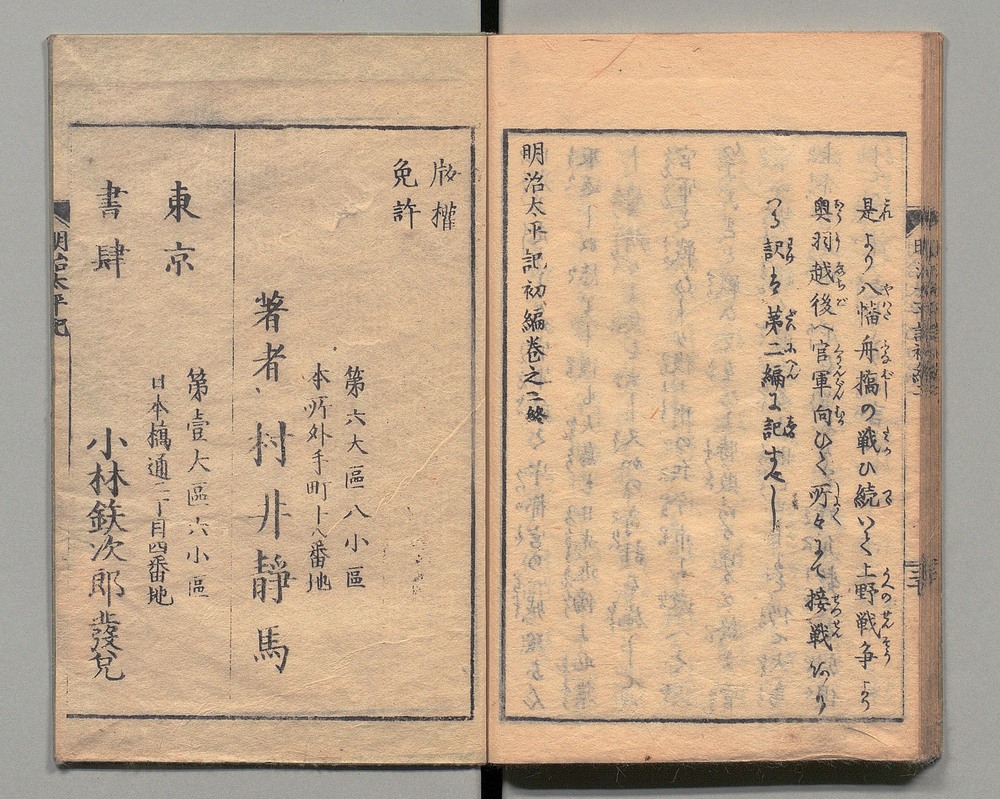 是より八幡舟橋の戦ひ続いて上野戦争より
奥羽越後へ官軍向ひて所々にて接戦あり
つる訳は第二編に記すべし
明治太平記初編巻之二終
版權
免許
第六大區八小區
本所外手町十八番地
著者 村井靜馬
東京
書肆
第壹大區六小區
日本橋通二丁目四番地
小林鉄次郎發兌
明治太平記